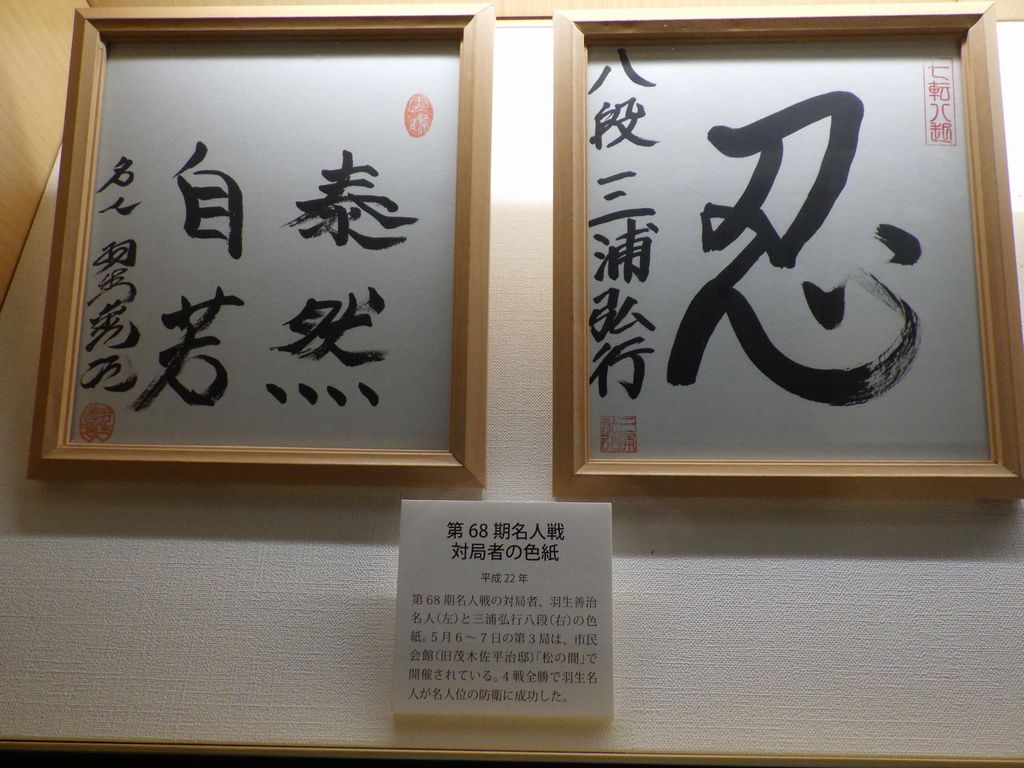 泰然
自芳
名人 羽生善治
七転八起
忍
八段 三浦弘行
第68期名人戦
対局者の色紙
平成22年
第68期名人戦の対局者、羽生善治
名人(左)と三浦弘行八段(右)の色
紙。5月6~7日の第3局は、市民
会館(旧茂木佐平治邸)「松の間」で
開催されている。4戦全勝で羽生名
人が名人位の防衛に成功した。